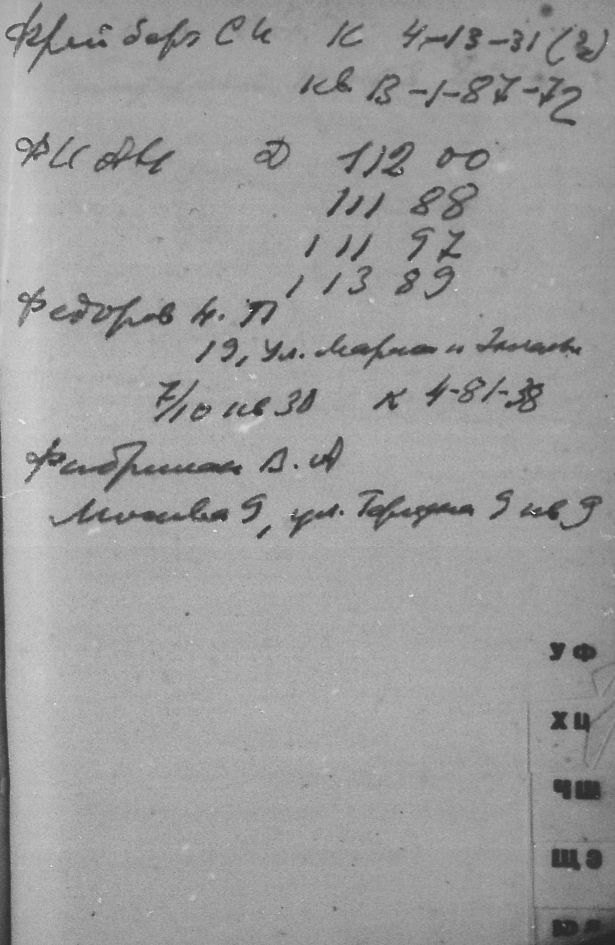 Фрейберг С И К 4-13-31 (3)
кв В-1-87-72
ФИАН Д 112 00
111 88
111 97
113 89
Федоров Н. П
19, ул. Маркса и Энгельса
7/10 кв 30 К 4-81-38
Фабрикант В. А
Москва 9, ул. Горького 9 кв 9
У Ф
Х Ц
Ч Ш
Щ Э
Ю Я